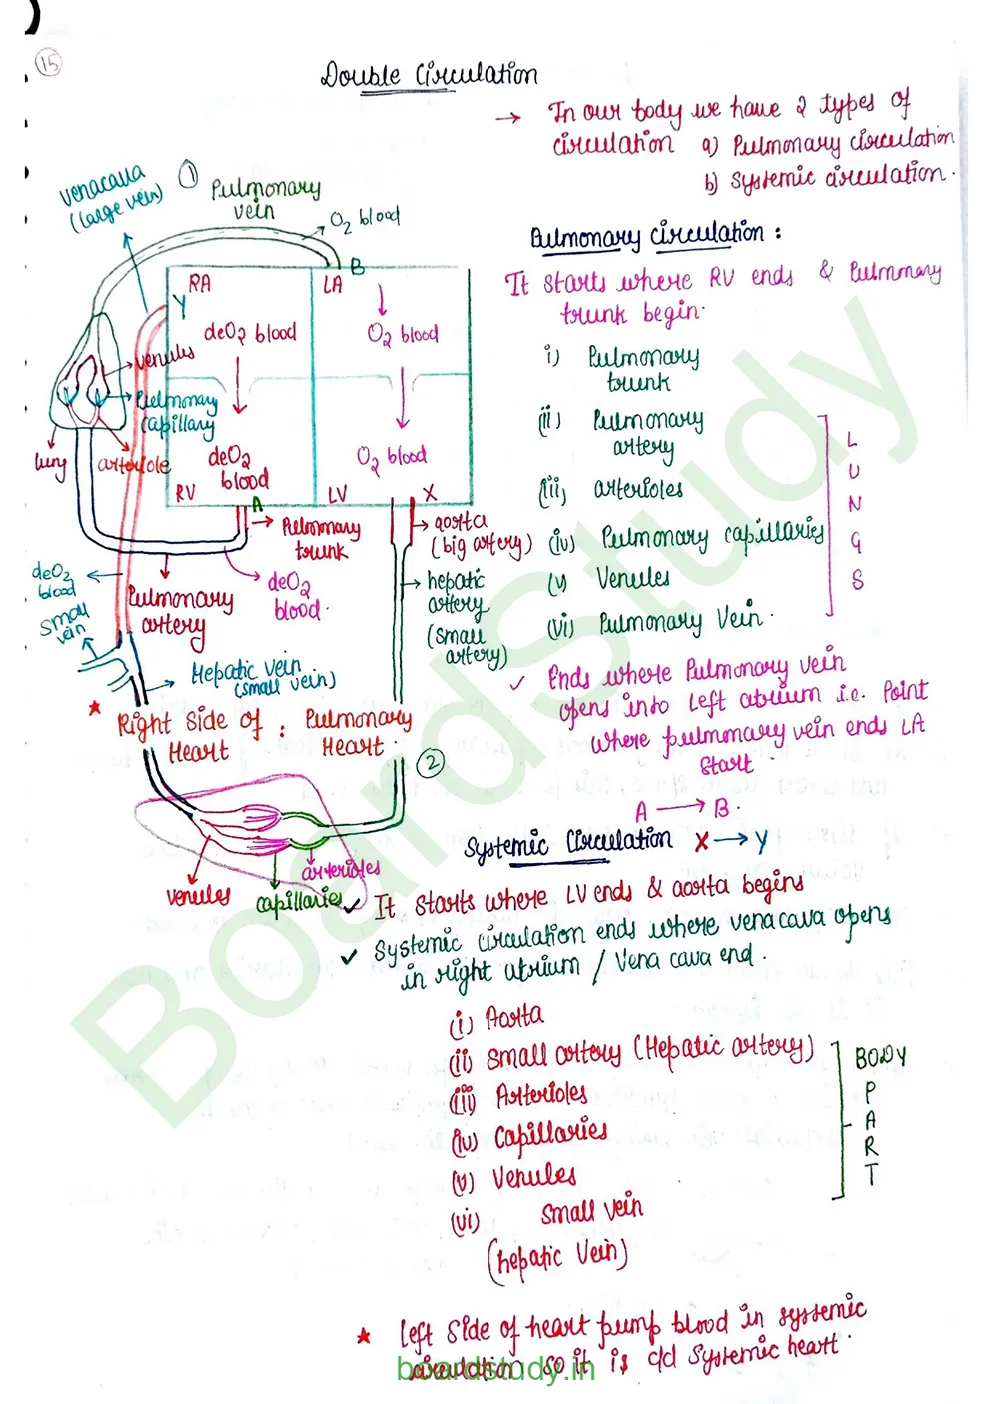 15
Double Circulation
→ In our body we have 2 types of
circulation a) Pulmonary circulation
b) Systemic circulation.
venacava
(large vein)
1
Pulmonary
vein
O2 blood
B
RA
LA
Y
deO2 blood
O2 blood
venules
Pulmonary
capillary
lung
arteriole
deO2
blood
O2 blood
RV
A
LV
X
Pulmonary
trunk
aorta
(big artery)
deO2
blood
Pulmonary
artery
deO2
blood.
hepatic
artery
(small
artery)
small
vein
Hepatic vein
(small vein)
★ Right Side of : Pulmonary
Heart Heart.
2
venules
capillaries
arterioles
Pulmonary circulation :
It starts where RV ends & Pulmonary
trunk begin.
i) Pulmonary
trunk
(ii) Pulmonary
artery
(iii) arterioles
(iv) Pulmonary capillaries
(v) Venules
(vi) Pulmonary Vein.
L
U
N
G
S
✓ Ends where Pulmonary vein
opens into Left atrium i.e. Point
where pulmonary vein ends LA
start.
A → B.
Systemic Circulation X → Y
✓ It starts where LV ends & aorta begins
✓ Systemic circulation ends where venacava opens
in right atrium / Vena cava end.
(i) Aorta
(ii) Small artery (Hepatic artery)
(iii) Arterioles
(iv) Capillaries
(v) Venules
(vi) Small vein
(hepatic Vein)
BODY
P
A
R
T
★ Left Side of heart pump blood in systemic
circulation so it is c/d Systemic heart.
BoardStudy
boardstudy.in